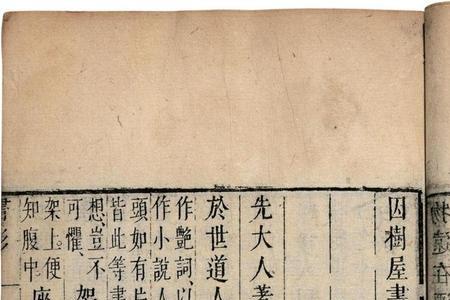 物遠在
因樹屋書
先大人著
於世道人
作艷詞以
作小說人
頭如有片
皆此等書
想豈不
可懼。
架
架上。便
知腹中
座
書影